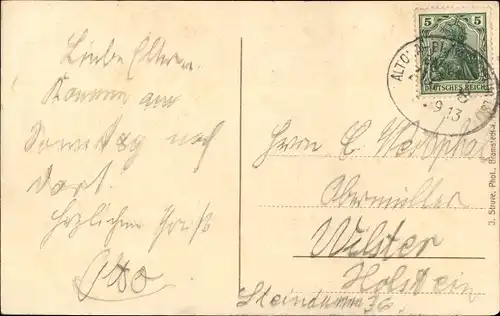 Liebe Eltern.
Komme am
Sonntag nach
dort.
Herzlichen Gruß
Otto
5
DEUTSCHES REICH
ALTO
9.13
Herrn C. Westphal
Obermüller
Wilster
Holstein
Steindamm 36.
J. Struve, Phot., Bramstedt